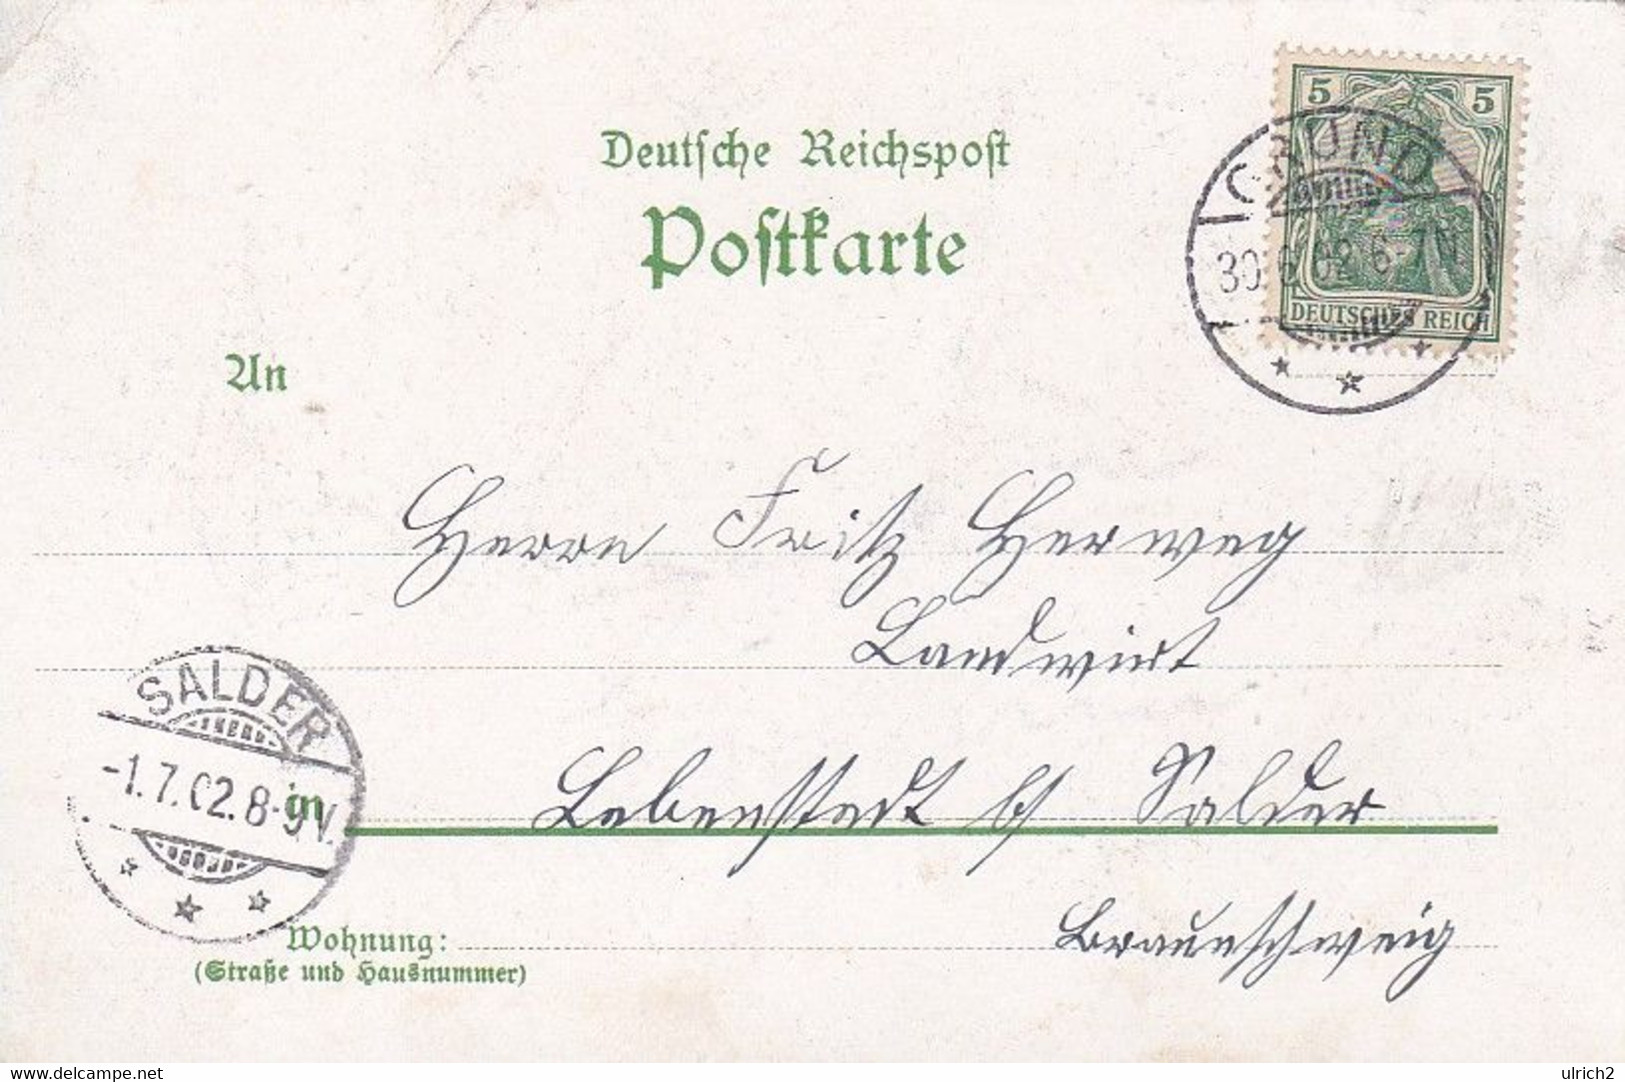 5 5
GRUND
30.6.02.6-7N
DEUTSCHES REICH
Deutsche Reichspost
Postkarte
An
Herrn Fritz Herweg
Landwirt
SALDER
-1.7.02.8-9V.
in Lebenstedt b/ Salder
Braunschweig
Wohnung:
(Straße und Hausnummer)
www.delcampe.net
ulrich2